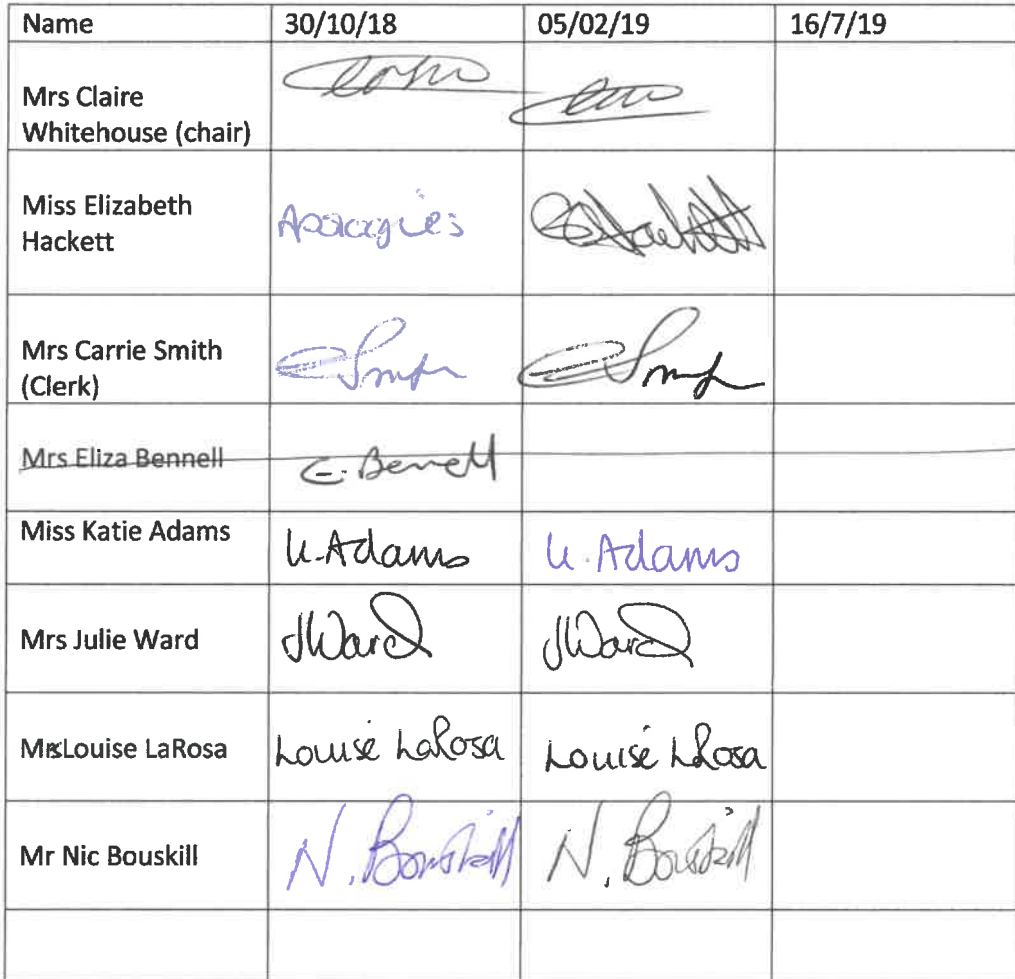 Name 30/10/18 05/02/19 16/7/19
Mrs Claire
Whitehouse (chair)
Miss Elizabeth
Hackett Apologies
Mrs Carrie Smith
(Clerk)
Mrs Eliza Bennell E. Bennell
Miss Katie Adams K. Adams K. Adams
Mrs Julie Ward JWard JWard
Mrs Louise LaRosa Louise LaRosa Louise LaRosa
Mr Nic Bouskill N. Bouskill N. Bouskill